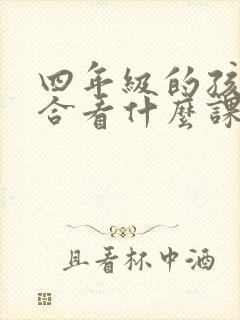 四年級的孩
合看什麼課
且看杯中酒